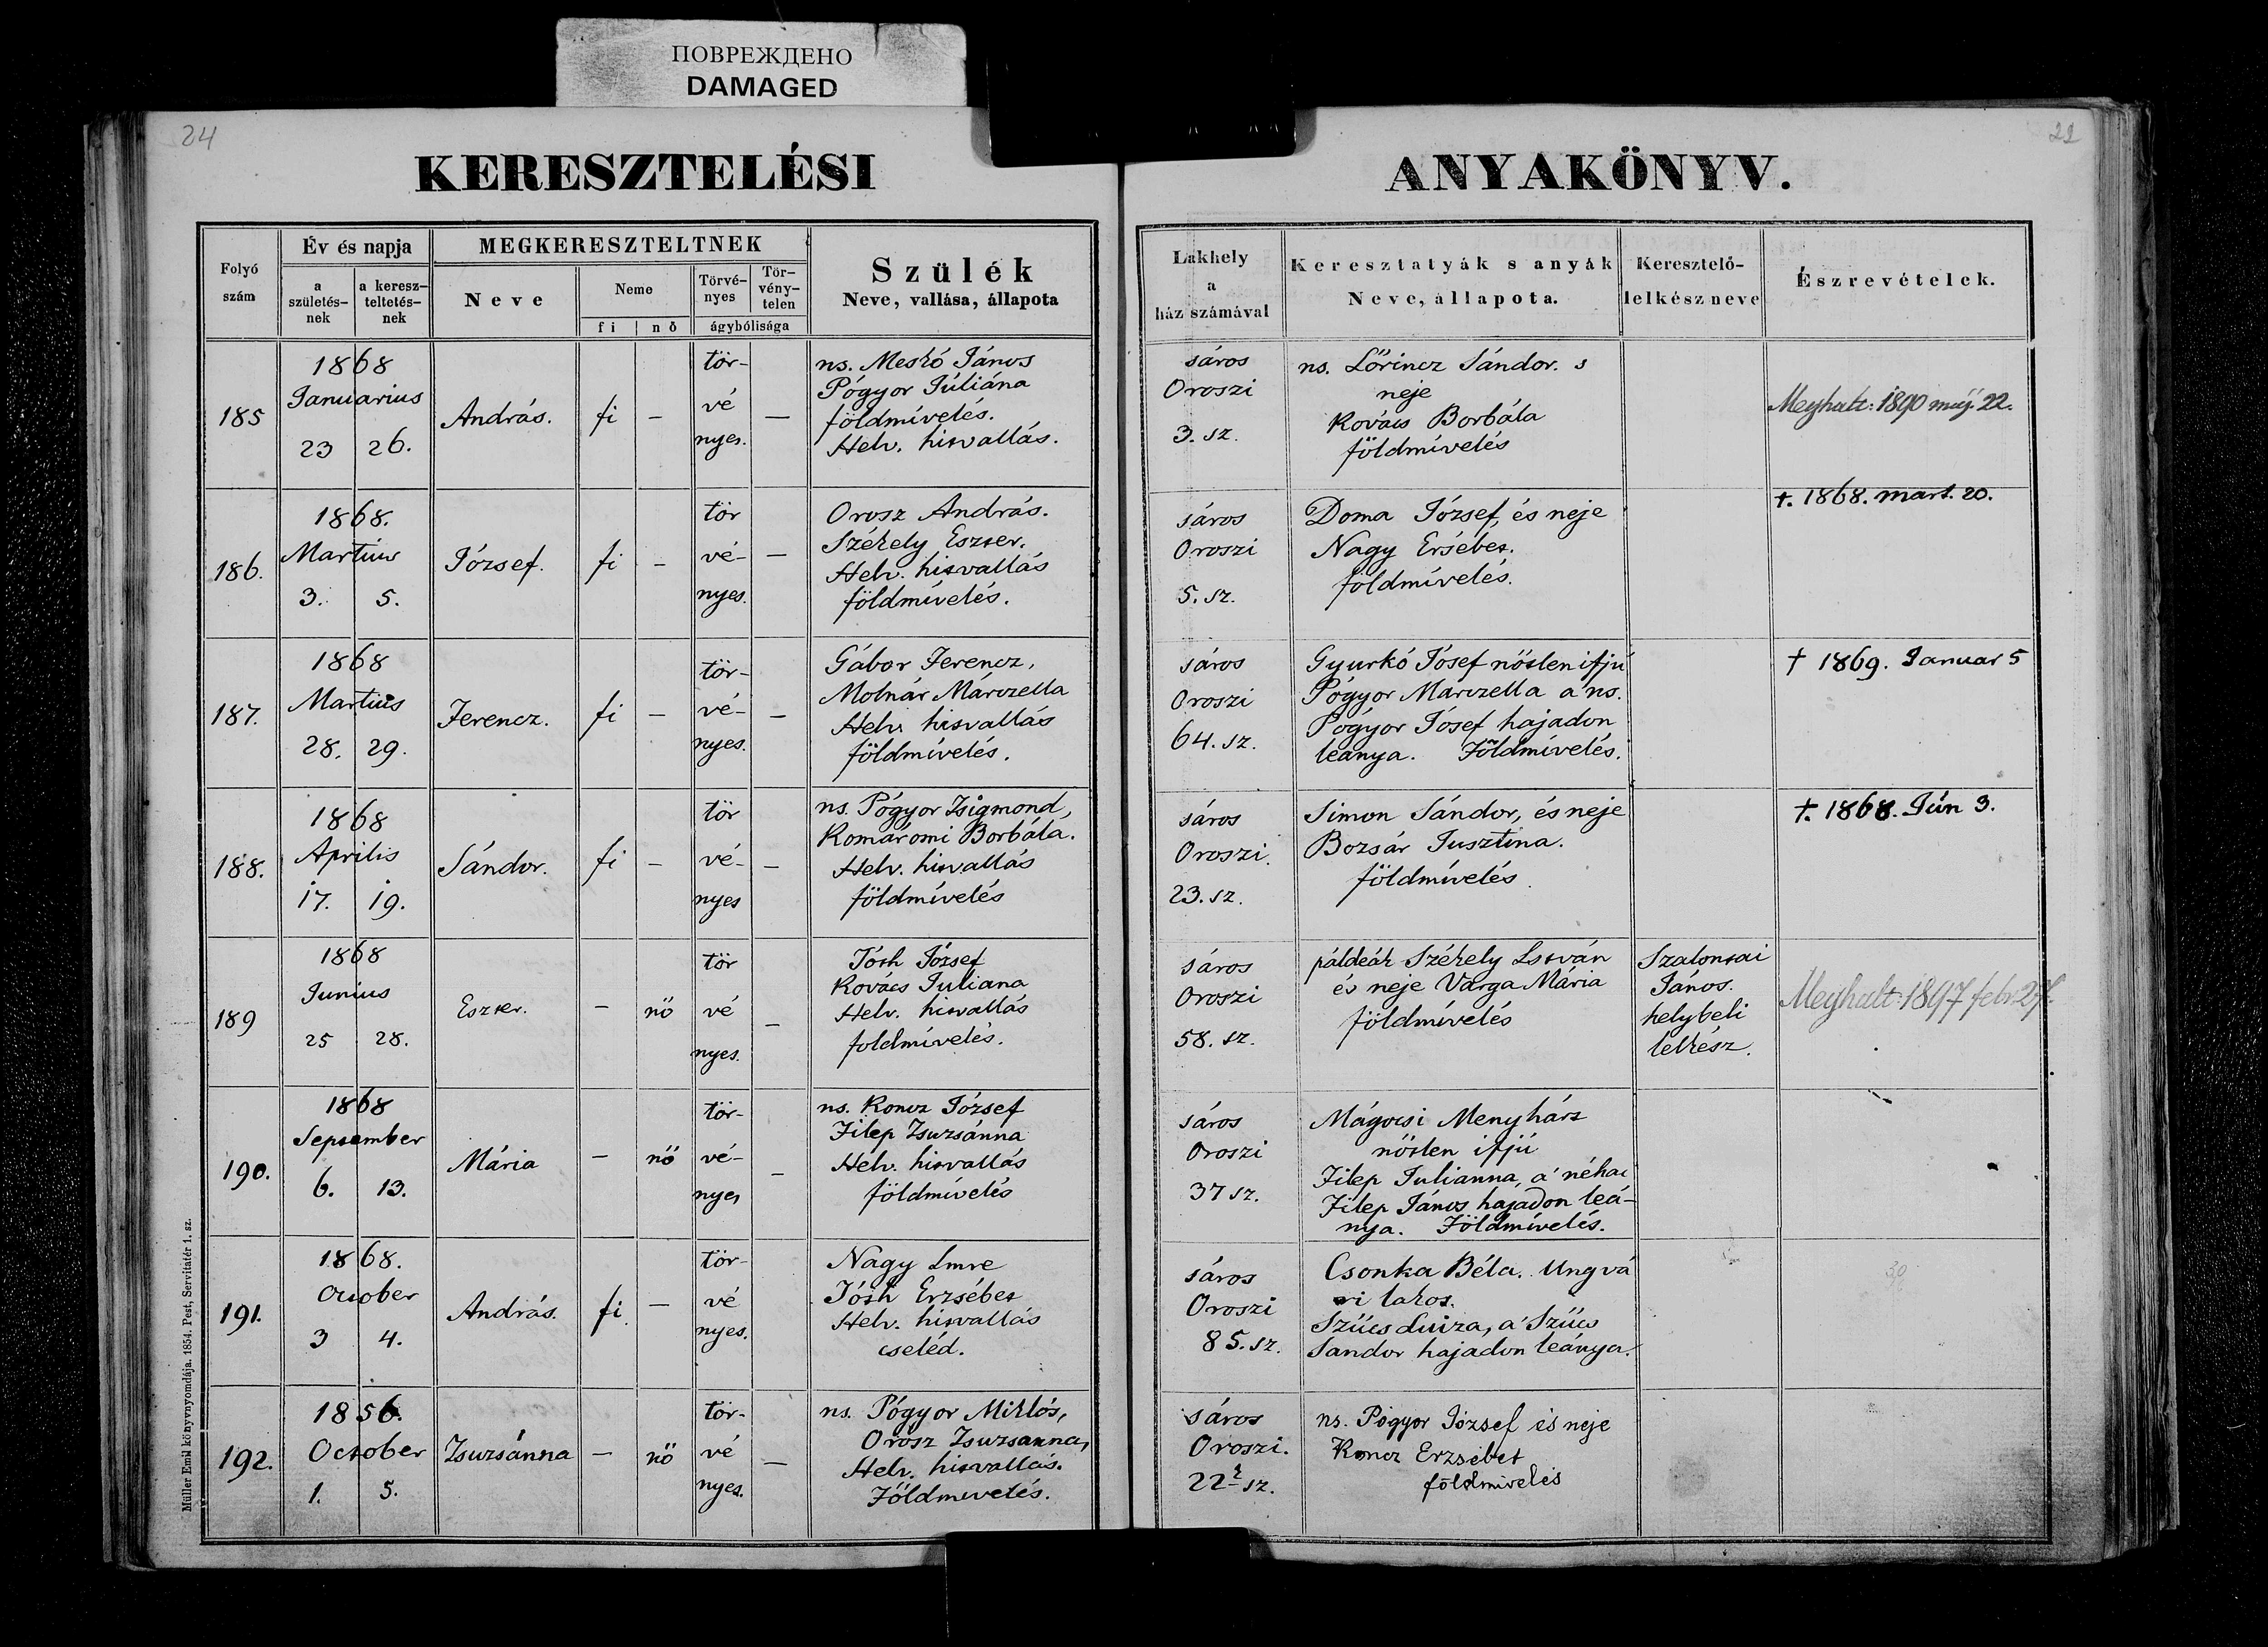 ПОВРЕЖДЕНО
DAMAGED
24
22
KERESZTELÉSI
ANYAKÖNYV.
Folyó
szám
Év és napja
a
születés-
nek
a keresz-
teltetés-
nek
MEGKERESZTELTNEK
Neve
Neme
fi | nő
Törvé-
nyes
Tör-
vény-
telen
ágybólisága
Szülék
Neve, vallása, állapota
Lakhely
a
ház számával
Keresztatyák s anyák
Neve, állapota.
Keresztelő-
lelkész neve
Észrevételek.
185
1868
Januarius
23 26.
András.
fi –
tör-
vé
nyes.
—
ns. Meskó János
Pógyor Júliána
földmívelés.
Helv. hitvallás.
sáros
Oroszi
3. sz.
ns. Lőrincz Sándor. s
neje
Kovács Borbála
földmívelés
Meghalt: 1890 máj. 22.
186.
1868.
Martius
3. 5.
József.
fi –
tör
vé-
nyes.
—
Orosz András.
Székely Eszter.
Helv. hitvallás
földmívelés.
sáros
Oroszi
5. sz.
Doma József, és neje
Nagy Ersébet.
földmívelés.
†. 1868. mart. 20.
187.
1868
Martius
28. 29.
Ferencz.
fi –
tör-
vé-
nyes.
–
Gábor Ferencz,
Molnár Márczella
Helv. hitvallás
földmívelés.
sáros
Oroszi
64. sz.
Gyurkó Jósef nőtlen ifjú
Pógyor Marczella a' ns.
Pógyor Jósef hajadon
leánya. Földmívelés.
† 1869. Januar 5
188.
1868
Aprilis
17. 19.
Sándor.
fi –
tör
vé-
nyes
–
ns. Pógyor Zsigmond,
Komáromi Borbála.
Helv. hitvallás
földmívelés
sáros
Oroszi.
23. sz.
Simon Sándor, és neje
Bozsár Jusztina.
földmívelés.
†. 1868. Jún 3.
189
1868
Junius
25 28.
Eszter.
– nő
tör
vé
nyes.
–
Tóth József
Kovács Juliana
Helv. hitvallás
földmívelés.
sáros
Oroszi
58. sz.
páldeák Székely István
és neje Varga Mária
földmívelés
Szalontai
János.
helybeli
lelkész.
Meghalt: 1897 febr 27.
190.
1868
September
6. 13.
Mária
– nő
tör-
vé-
nyes
–
ns. Koncz József
Filep Zsuzsánna
Helv. hitvallás
földmívelés
sáros
Oroszi
37 sz.
Mágocsi Menyhárt
nőtlen ifjú
Filep Julianna, a' néhai
Filep János hajadon leá-
nya. Földmívelés.
191.
1868.
October
3 4.
András.
fi. –
tör-
vé
nyes.
Nagy Imre
Tóth Erzsébet
Helv. hitvallás
cseléd.
sáros
Oroszi
85. sz.
Csonka Béla. Ungvá
ri lakos.
Szűcs Luiza, a' Szűcs
Sandor hajadon leánya.
192.
1856.
October
1. 5.
Zsuzsánna
– nő
tör-
vé
nyes.
–
ns. Pógyor Miklós,
Orosz Zsuzsanna,
Helv. hitvallás.
Földmívelés.
sáros
Oroszi.
22 sz.
ns. Pógyor József és neje
Koncz Erzsébet
földmívelés
Müller Emil könyvnyomdája. 1854. Pest, Servitatér 1. sz.